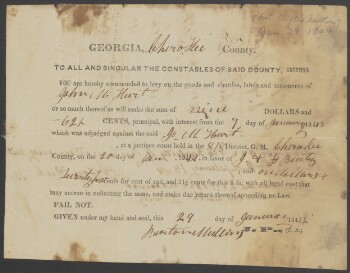 Jan 29, 1842
GEORGIA, Cherokee County.
TO ALL AND SINGULAR THE CONSTABLES OF SAID COUNTY, GREETING
YOU are hereby commanded to levy on the goods and chattles, lands and tenements of
John M Hurt
or so much thereof as will make the sum of nine DOLLARS and
62½ CENTS, principal, with interest from the 7 day of January
which was adjudged against the said J. M Hurt
at a justices court held in the 818 District, G. M. Cherokee
County, on the 20 day of Jan in favor of
for cost of suit, and 31¼ cents for this fi fa, with all legal cost that
may accrue in collecting the same, and make due return thereof according to Law.
FAIL NOT.
GIVEN under my hand and seal, this 29 day of January 1842
Burton Mullins J. P. (L.S.)